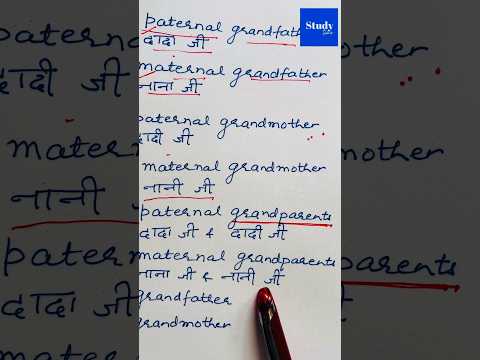 Study
paternal grandfath
दादा जी
maternal grandfather
नाना जी
paternal grandmother
दादी जी
maternal grandmother
नानी जी
paternal grandparents
दादा जी & दादी जी
maternal grandparents
नाना जी & नानी जी
grandfather
grandmother